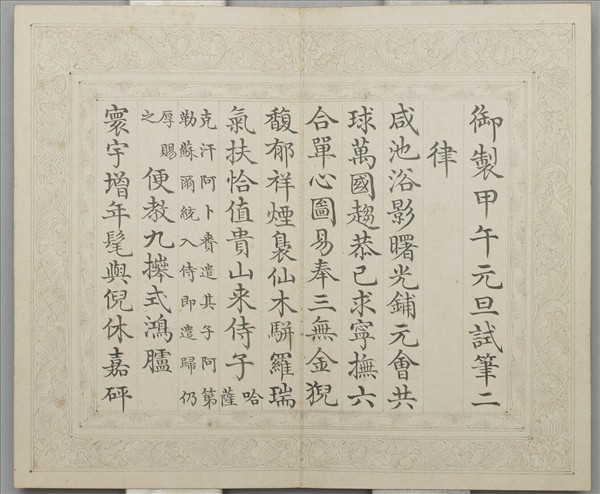 御製甲午元旦試筆二
律
咸池浴影曙光鋪元會共
球萬國趨恭己求寧撫六
合單心圖易奉三無金猊
馥郁祥煙裊仙木駢羅瑞
氣扶恰值貴山来侍子哈薩
克汗阿卜賚遣其子阿第
勒蘇爾統入侍即遣歸仍
厚賜之便教九式鴻臚
寰宇增年髦與倪休嘉砰